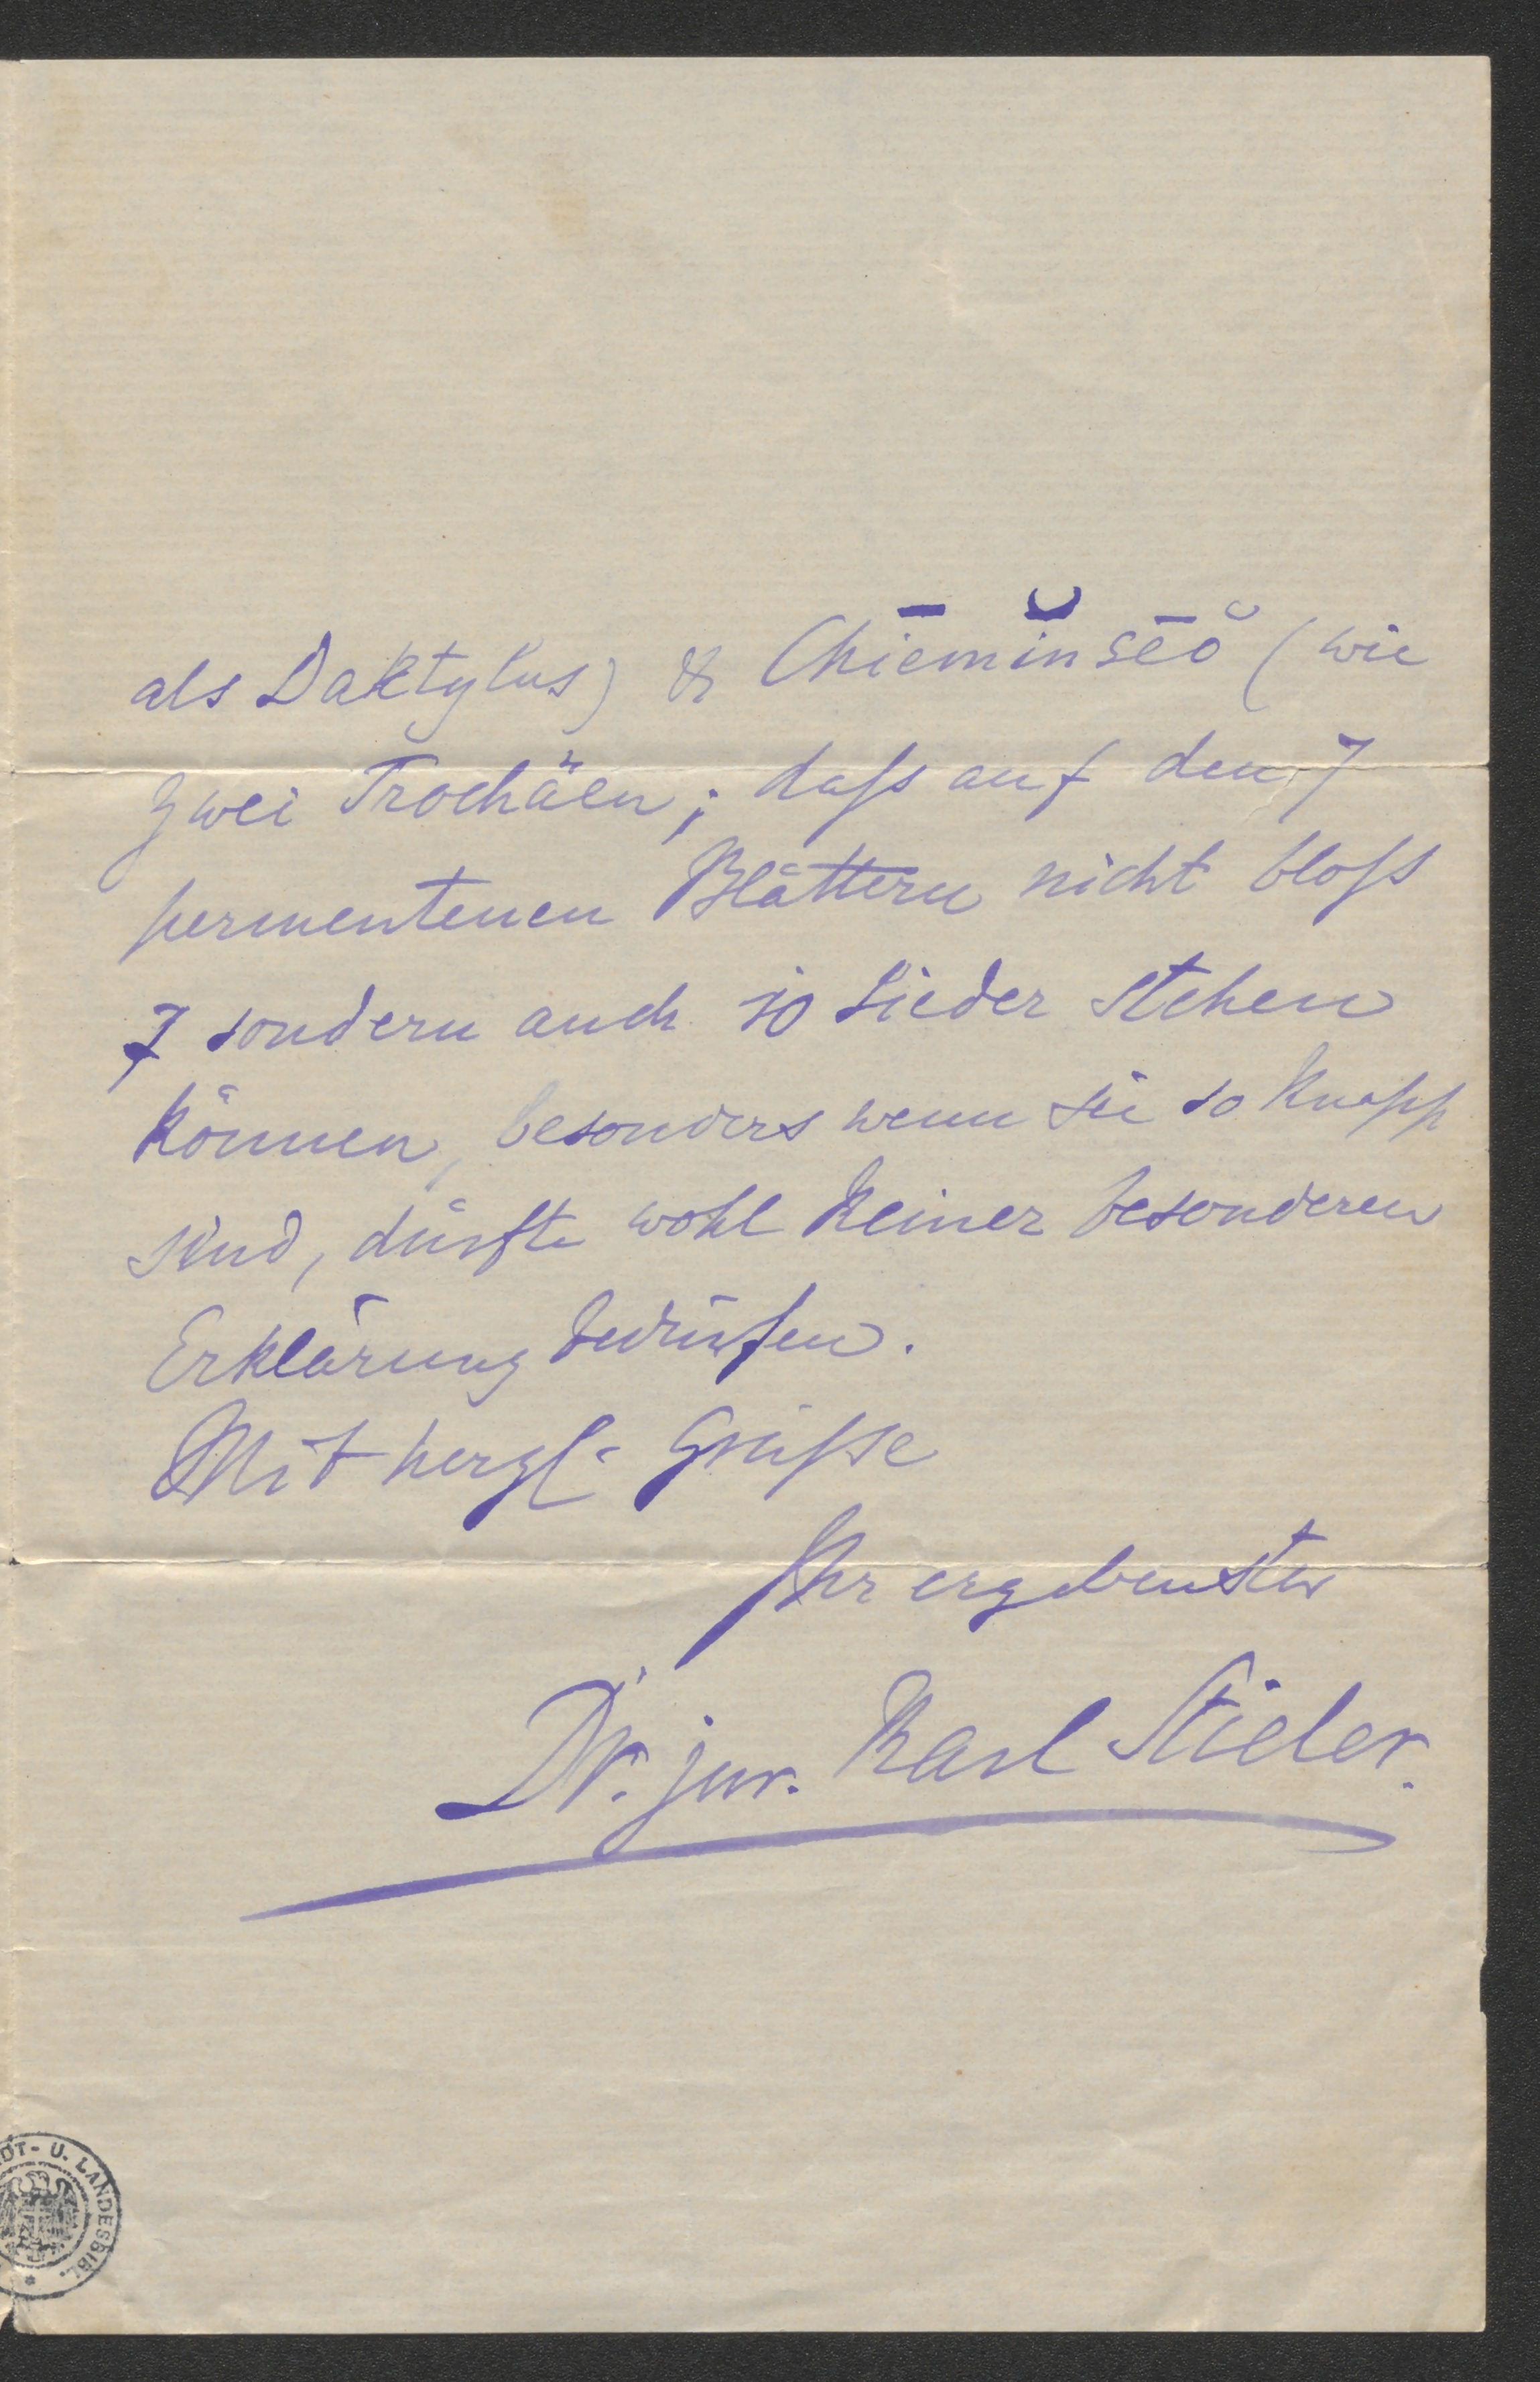 als Daktylus) & Chīemĭnsēŏ (wie
zwei Trochäen; dass auf den 7
permentenen Blättern nicht bloss
7 sondern auch 10 Lieder stehen
können, besonders wenn sie so knapp
sind, dürfte wohl keiner besonderen
Erklärung bedürfen.
Mit herzl. Grüsse
Ihr ergebenster
Dr. jur. Karl Stieler.
DT- U. LANDESBIBL.